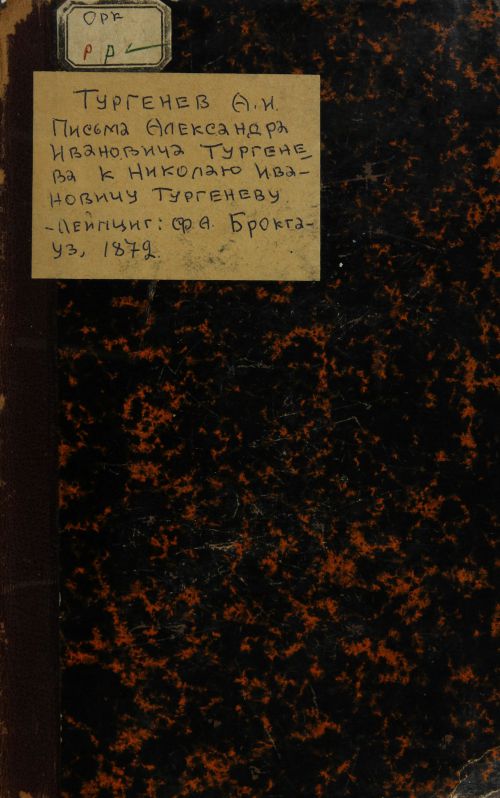 ОРК
РР
ТУРГЕНЕВ А.И.
ПИСЬМА АЛЕКСАНДРА
ИВАНОВИЧА ТУРГЕНЕ-
ВА К НИКОЛАЮ ИВА-
НОВИЧУ ТУРГЕНЕВУ
-ЛЕЙПЦИГ: Ф.А. БРОКГА-
УЗ, 1872.